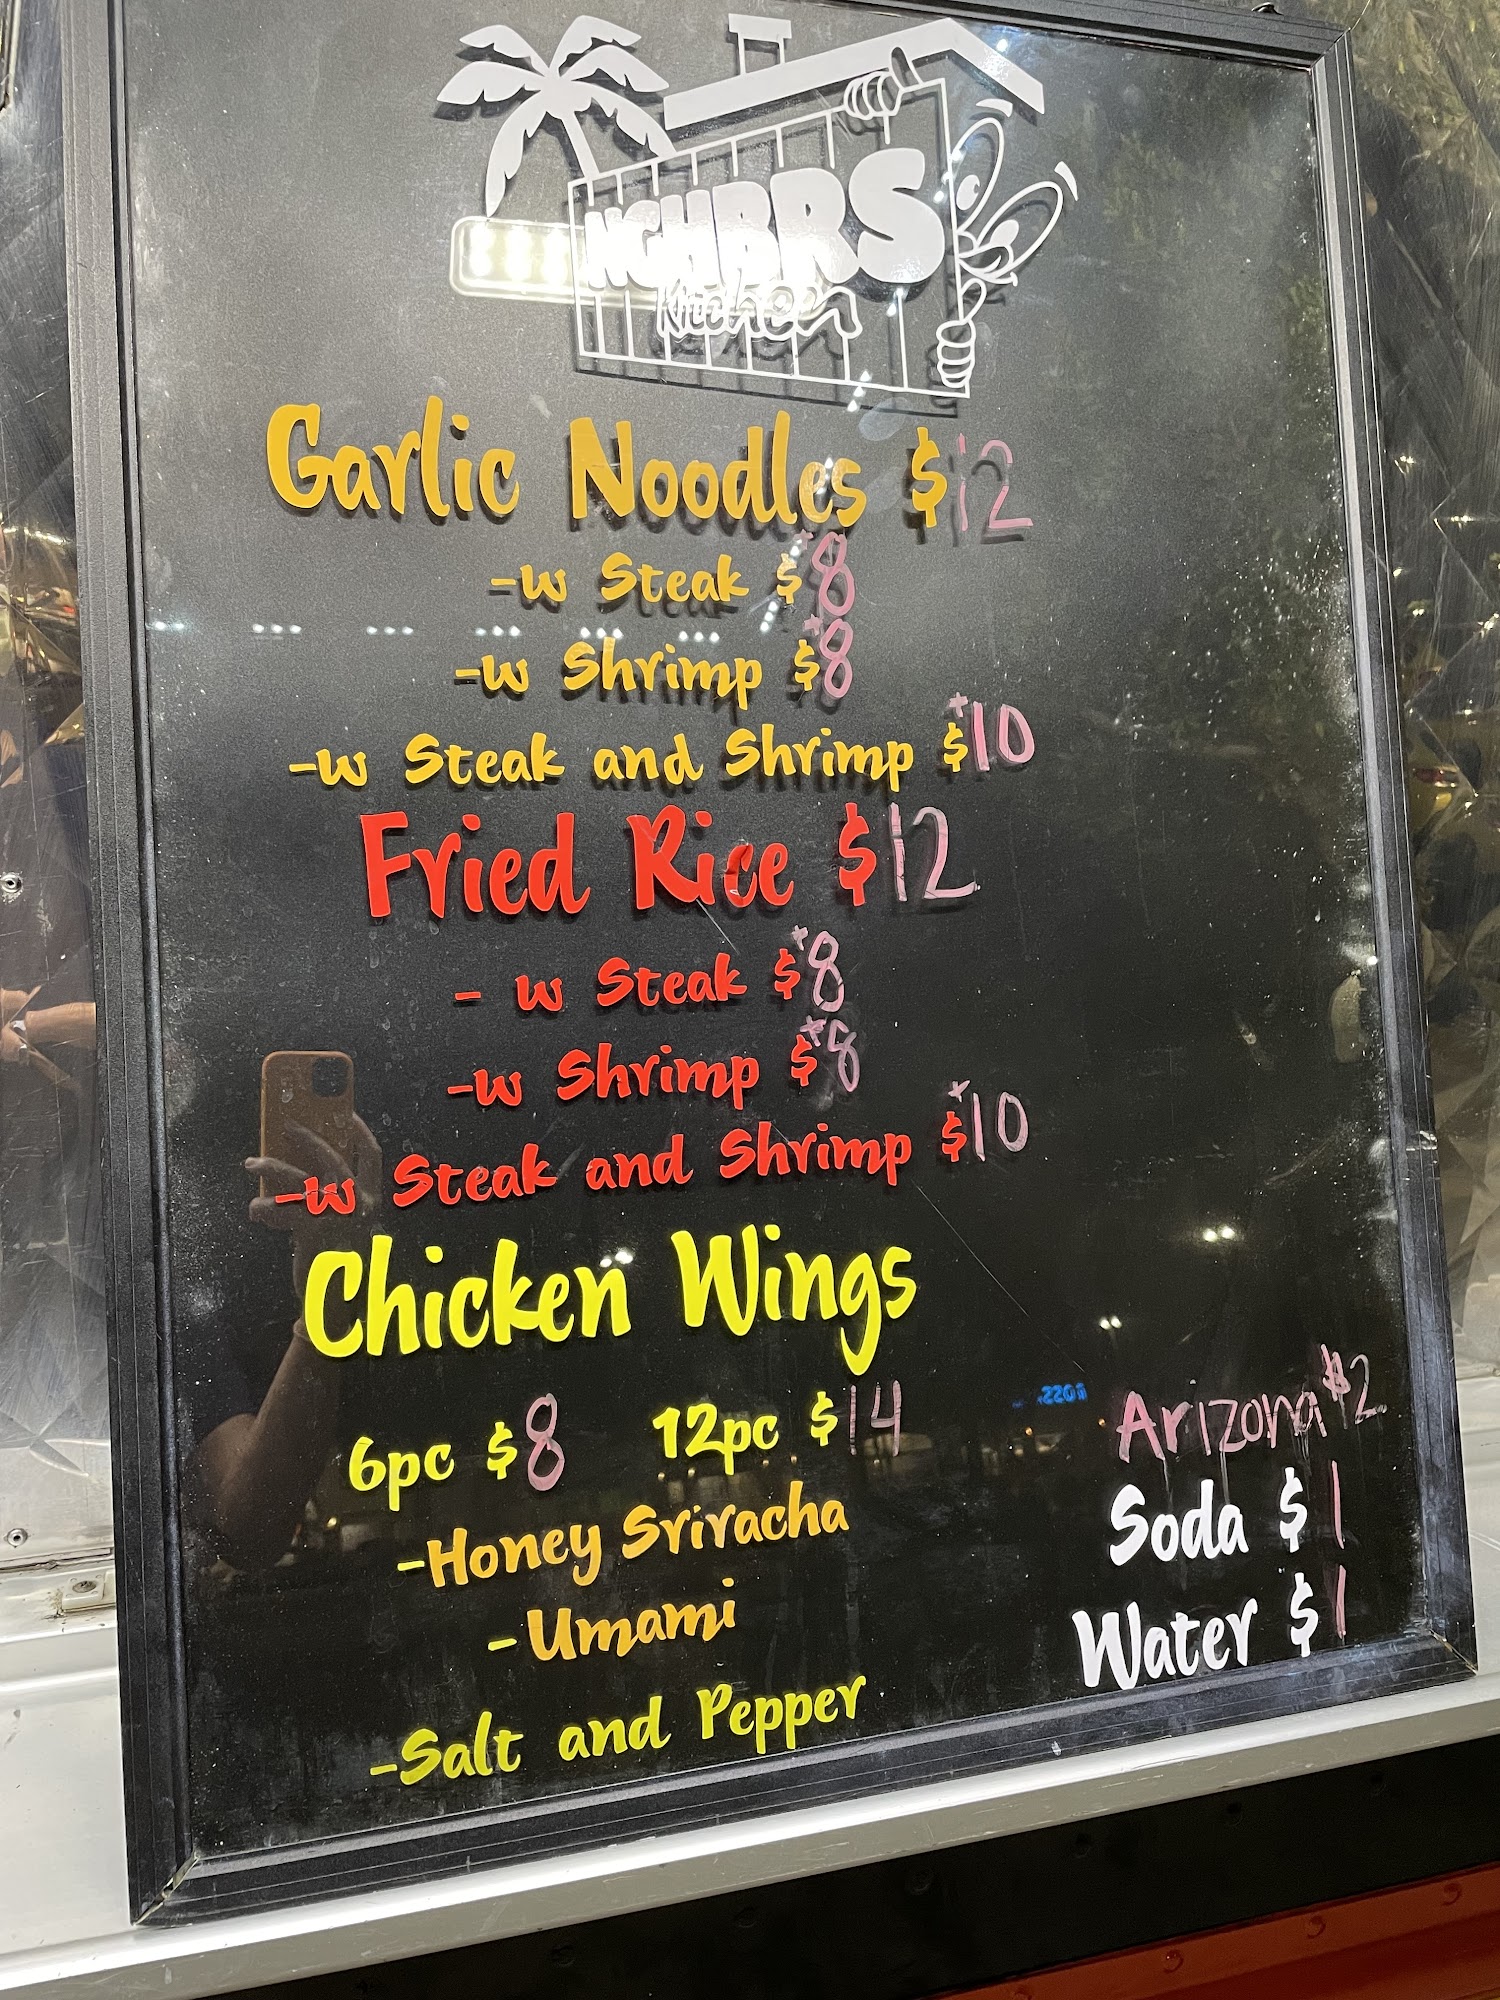 NGHBRS
Kitchen
Garlic Noodles $12
-w Steak $+8
-w Shrimp $+8
-w Steak and Shrimp $+10
Fried Rice $12
- w Steak $+8
-w Shrimp $+8
-w Steak and Shrimp $+10
Chicken Wings
6pc $8 12pc $14
-Honey Sriracha
-Umami
-Salt and Pepper
Arizona $2
Soda $1
Water $1